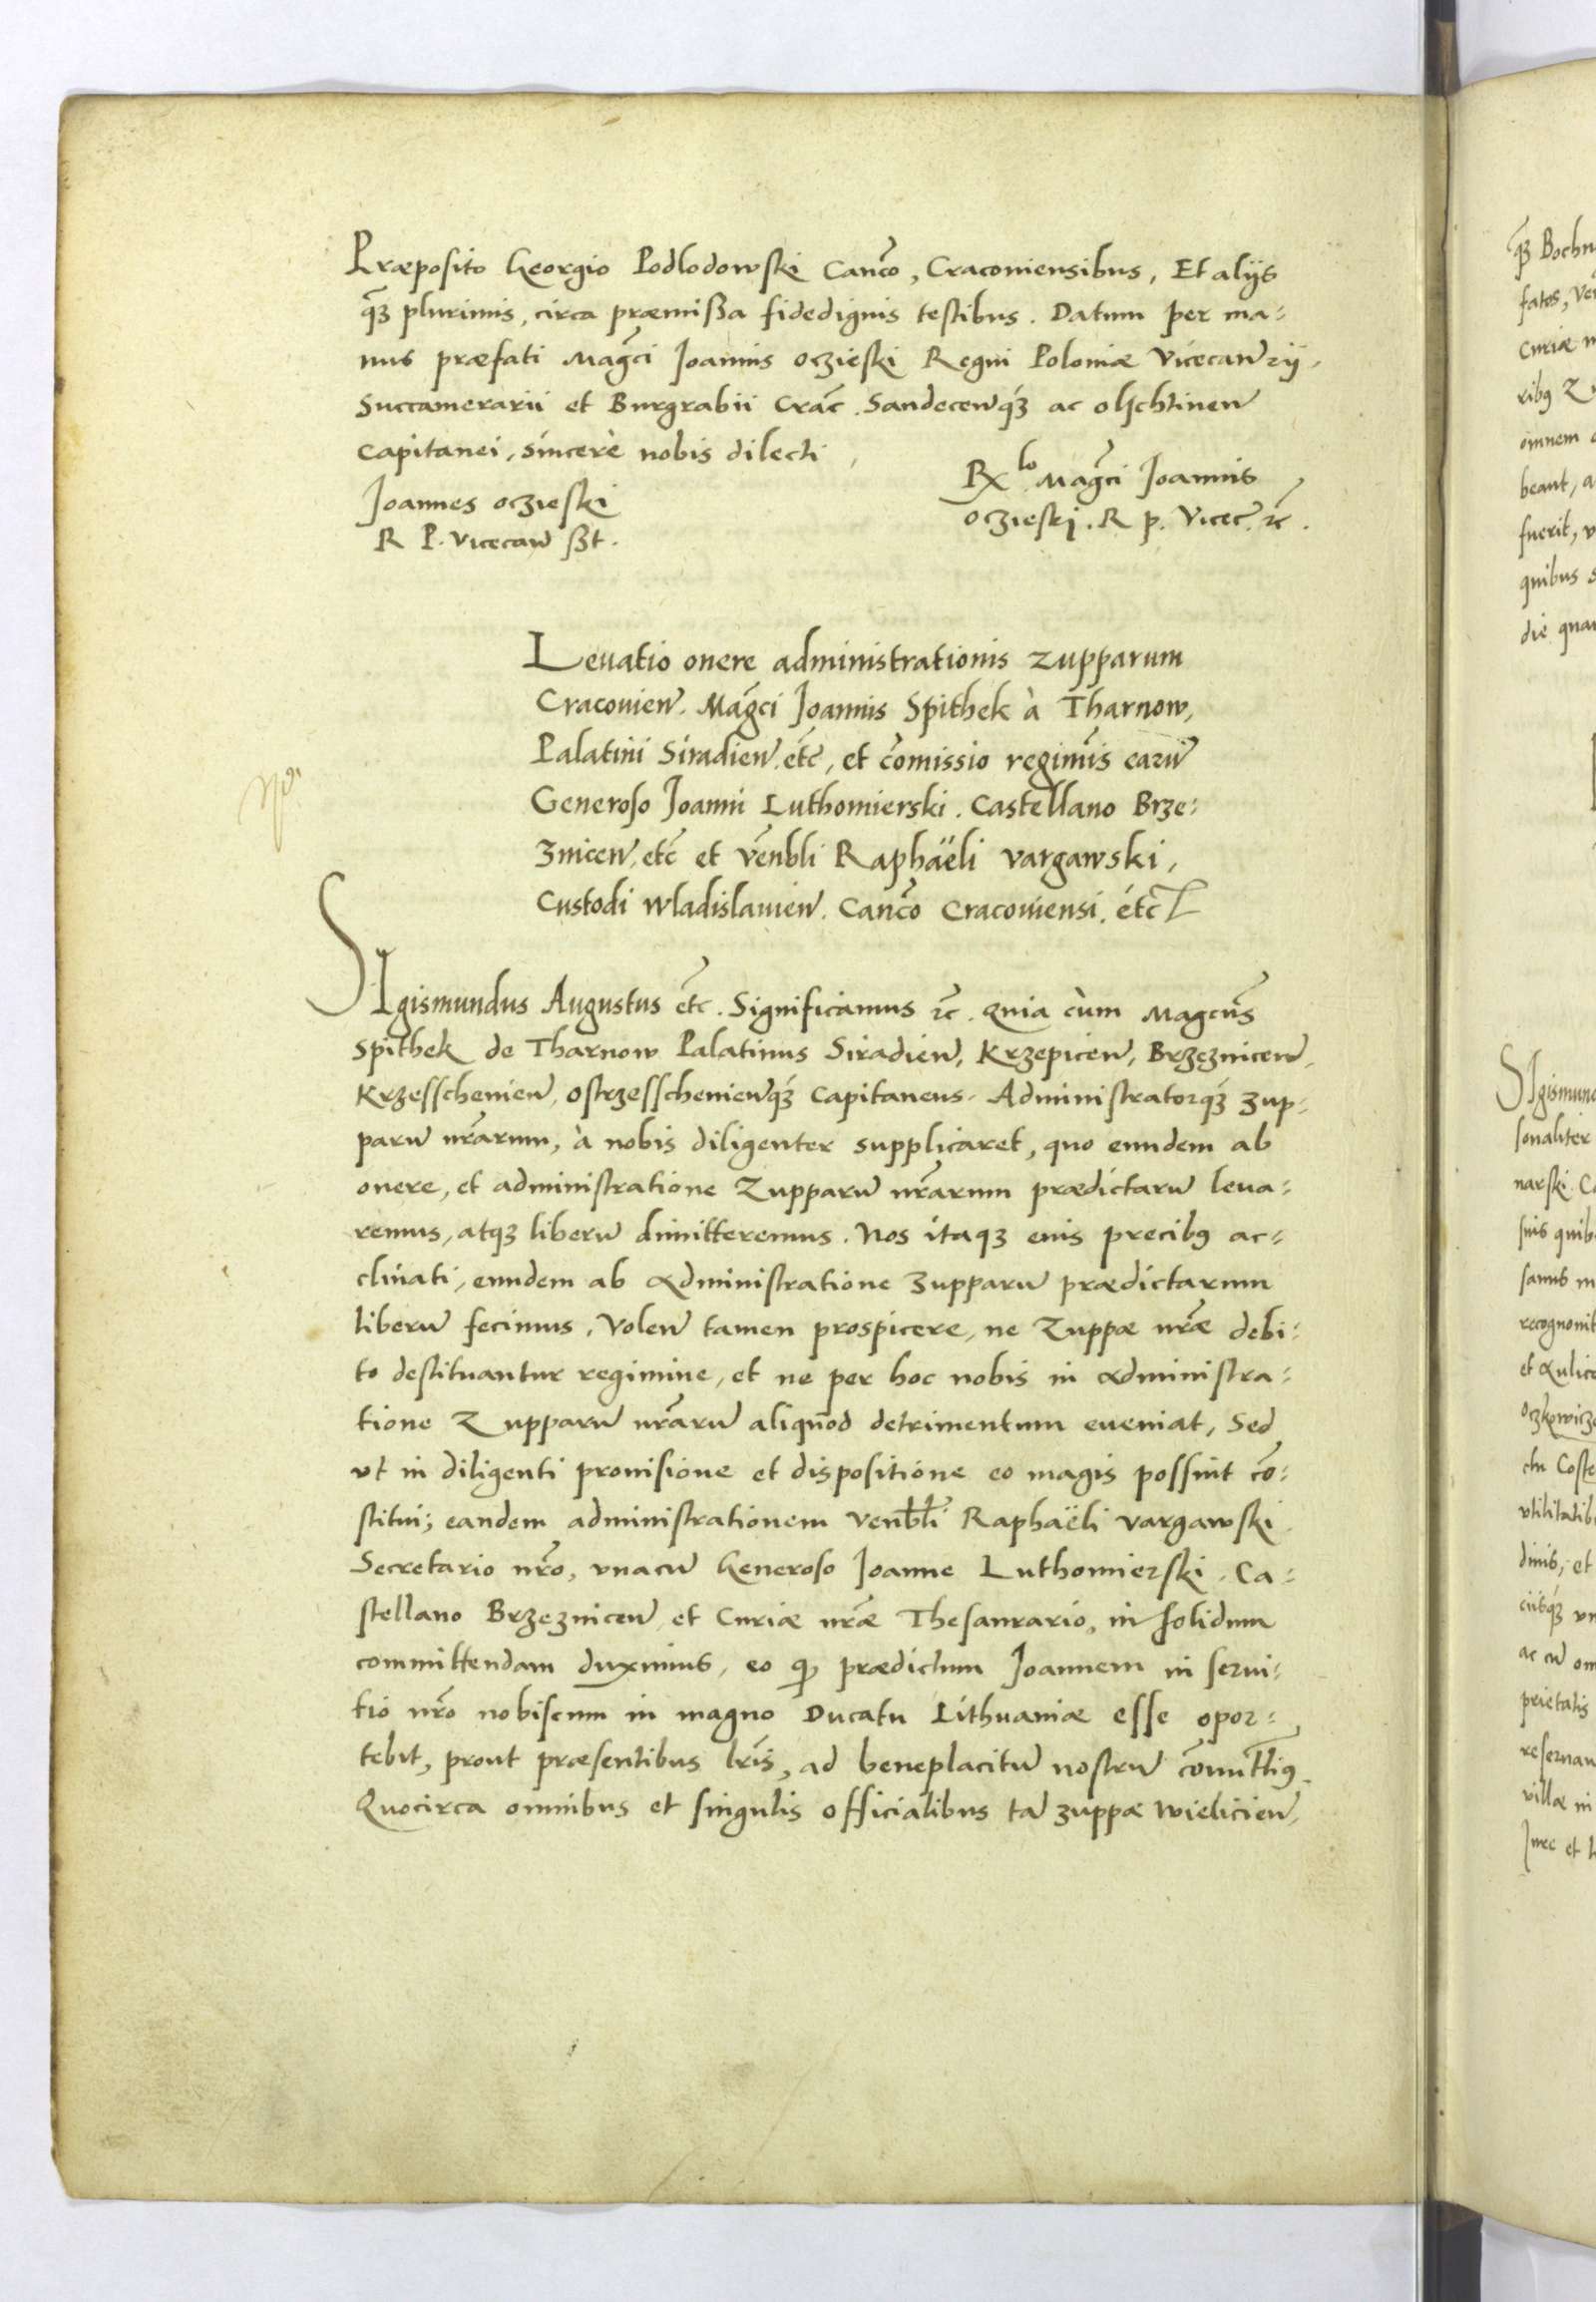 Præposito Georgio Podlodowski Canc̃o, Cracoviensibus, Et alijs
q̃ꝫ plurimis, circa præmißa fidedignis testibus. Datum per ma-
nus præfati Mag̃ci Joannis oczieski Regni Poloniæ Vicecan̄rij.
Succamerarii et Burgrabii Crac̃. Sandecen̄q́ꝫ ac olschtinen̄
Capitanei, sincerè nobis dilecti,
Joannes oczieski
R P. vicecan̄ ßt.
Rx lo Mag̃ci Joannis
oczieski. R p. Vicec̃. ꝛc̃.
Leuatio onere administrationis zupparum
Cracouien̄. Mag̃ci Joannis Spithek à Tharnow,
Palatini Siradien̄. etc̃, et c̃omissio regim̃is earū
Generoso Joanni Luthomierski. Castellano Brze-
znicen̄, etc̃ et Ṽenbli Raphaëli vargawski,
Custodi wladislauien̄. Canc̃o Cracouiensi. étc
SIgismundus Augustus etc̃. Significamus ꝛc̃. Quia cùm Magcus̃
Spithek de Tharnow Palatinus Siradien̄, Krzepicen̄, Brzeznicen̄.
Krzesschenien̄, ostrzesschenien̄q́ꝫ Capitaneus. Administratorq́ꝫ zup-
parū nr̃arum, à nobis diligenter supplicaret, quo eundem ab
onere, et administratione Zupparū nr̃arum prædictarū leua-
remus, atqꝫ liberū dimitteremus. Nos itaqꝫ eius precibꝰ ac-
clinati, eundem ab administratione zupparū prædictarum
liberū fecimus. Volen̄ tamen prospicere, ne Zuppæ nr̃æ debi-
to destituantur regimine, et ne per hoc nobis in administra-
tione Zupparū nr̃arū aliquod detrimentum eueniat, Sed
vt in diligenti prouisione et dispositione eo magis possint cõ-
stitui; eandem administrationem venbl̃i Raphaëli vargawski
Secretario nr̃o, vnacū Generoso Joanne Luthomierski. Ca-
stellano Brzeznicen̄ et Curiæ nr̃æ Thesaurario, in solidum
committendam duximus, eo ꝙ prædictum Joannem in serui-
tio nr̃o nobiscum in magno Ducatu Lithuaniæ esse opor-
tebit, prout præsentibus lr̃is, ad beneplacitū nostrū c̃omittimꝰ.
Quocirca omnibus et singulis officialibus tā zuppæ wielicien̄,